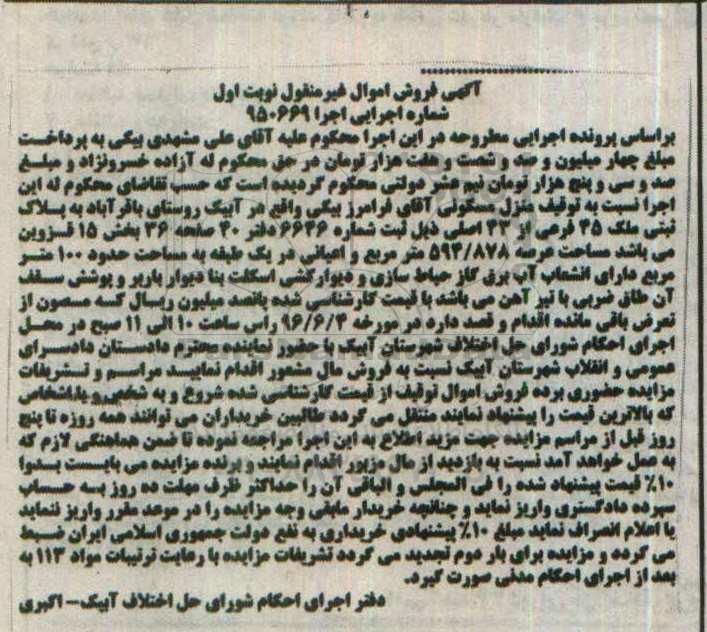 آگهی فروش اموال غیرمنقول نوبت اول
شماره اجرایی اجرا ۹۵۰۶۶۹
براساس پرونده اجرایی مطروحه در این اجرا محکوم علیه آقای علی مشهدی بیگی به پرداخت
مبلغ چهار میلیون و صد و شصت و هفت هزار تومان در حق محکوم له آزاده خسرونژاد و مبلغ
صد و سی و پنج هزار تومان نیم عشر دولتی محکوم گردیده است که حسب تقاضای محکوم له این
اجرا نسبت به توقیف منزل مسکونی آقای فرامرز بیگی واقع در آبیک روستای باقرآباد به پلاک
ثبتی ملک ۴۵ فرعی از ۴۳ اصلی ذیل ثبت شماره ۶۶۴۶ دفتر ۴۰ صفحه ۳۶ بخش ۱۵ قزوین
می باشد مساحت عرصه ۵۹۴/۸۷۸ متر مربع و اعیانی در یک طبقه به مساحت حدود ۱۰۰ متر
مربع دارای انشعاب آب برق گاز حیاط سازی و دیوارکشی اسکلت بنا دیوار باربر و پوشش سقف
آن طاق ضربی با تیر آهن می باشد با قیمت کارشناسی شده پانصد میلیون ریال که مصون از
تعرض باقی مانده اقدام و قصد دارد در مورخه ۹۶/۶/۴ راس ساعت ۱۰ الی ۱۱ صبح در محل
اجرای احکام شورای حل اختلاف شهرستان آبیک با حضور نماینده محترم دادستان دادسرای
عمومی و انقلاب شهرستان آبیک نسبت به فروش مال مشعور اقدام نمایید مراسم و تشریفات
مزایده حضوری برده فروش اموال توقیف از قیمت کارشناسی شده شروع و به شخص و یا اشخاص
که بالاترین قیمت را پیشنهاد نمایند منتقل می گردد طالبین خریداران می توانند همه روزه تا پنج
روز قبل از مراسم مزایده جهت مزید اطلاع به این اجرا مراجعه نموده تا ضمن هماهنگی لازم که
به عمل خواهد آمد نسبت به بازدید از مال مزبور اقدام نمایند و برنده مزایده می بایست بدوا
۱۰٪ قیمت پیشنهاد شده را فی المجلس و الباقی آن را حداکثر ظرف مهلت ده روز به حساب
سپرده دادگستری واریز نماید و چنانچه خریدار مابقی وجه مزایده را در موعد مقرر واریز ننماید
یا اعلام انصراف نماید مبلغ ۱۰٪ پیشنهادی خریداری به نفع دولت جمهوری اسلامی ایران ضبط
می گردد و مزایده برای بار دوم تجدید می گردد تشریفات مزایده با رعایت ترتیبات مواد ۱۱۳ به
بعد از اجرای احکام مدنی صورت گیرد.
دفتر اجرای احکام شورای حل اختلاف آبیک - اکبری